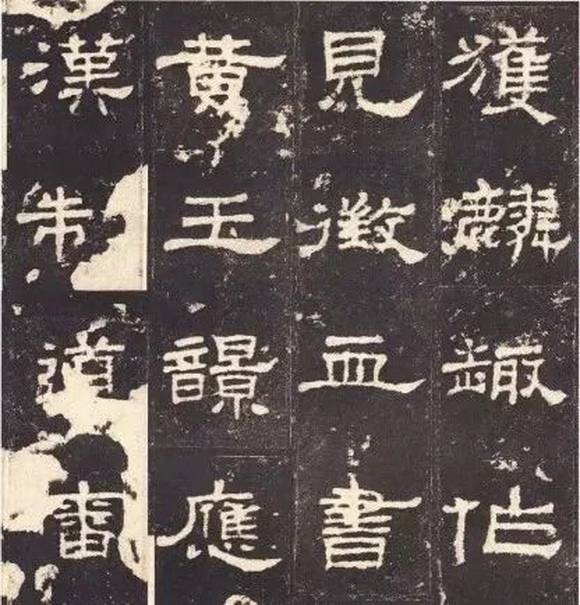 獲麟趣作
見徵血書
黃玉應
漢制道審